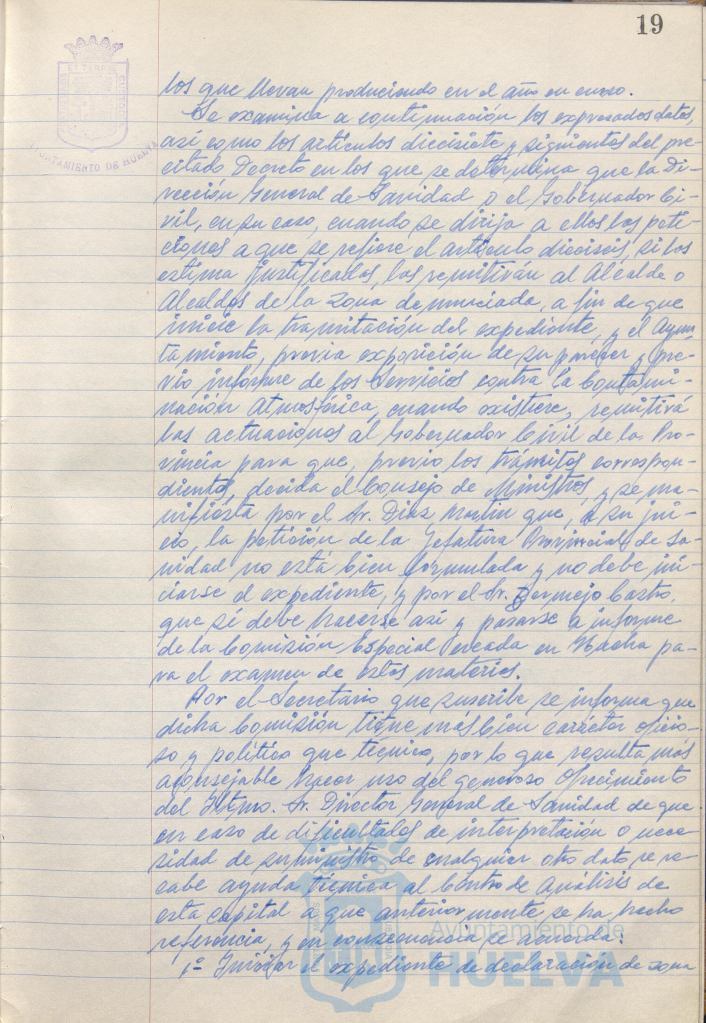 19
AYUNTAMIENTO DE HUELVA
los que llevan produciendo en el año en curso.
Se examina a continuación los expresados datos,
así como los artículos diecisiete y siguientes del pre-
citado Decreto en los que se determina que la Di-
rección General de Sanidad o el Gobernador Ci-
vil, en su caso, cuando se dirija a ellos las peti-
ciones a que se refiere el artículo dieciseis, si las
estima justificadas, las remitirán al Alcalde o
Alcaldes de la zona denunciada, a fin de que
inicie la tramitación del expediente, y el Ayun-
tamiento, previa exposición de su parecer y pre-
vio informe de los Servicios contra la Contami-
nación Atmosférica, cuando existiere, remitirá
las actuaciones al Gobernador Civil de la Pro-
vincia para que, previo los trámites correspon-
dientes, decida el Consejo de Ministros, y se ma-
nifiesta por el Sr. Díaz Martín que, a su jui-
cio, la petición de la Jefatura Provincial de Sa-
nidad no está bien formulada y no debe ini-
ciarse el expediente, y por el Sr. Bermejo Castro,
que sí debe hacerse así y pasarse a informe
de la Comisión Especial creada en
pa-
ra el examen de estas materias.
Por el Secretario que suscribe se informa que
dicha Comisión tiene más bien carácter oficio-
so y político que técnico, por lo que resulta más
aconsejable hacer uso del generoso ofrecimiento
del Iltmo. Sr. Director General de Sanidad de que
en caso de dificultades de interpretación o nece-
sidad de suministro de cualquier otro dato se re-
cabe ayuda técnica al Centro de Análisis de
esta capital a que anteriormente se ha hecho
referencia, y en consecuencia se acuerda:
1º Iniciar el expediente de declaración de zona
Ayuntamiento de
HUELVA